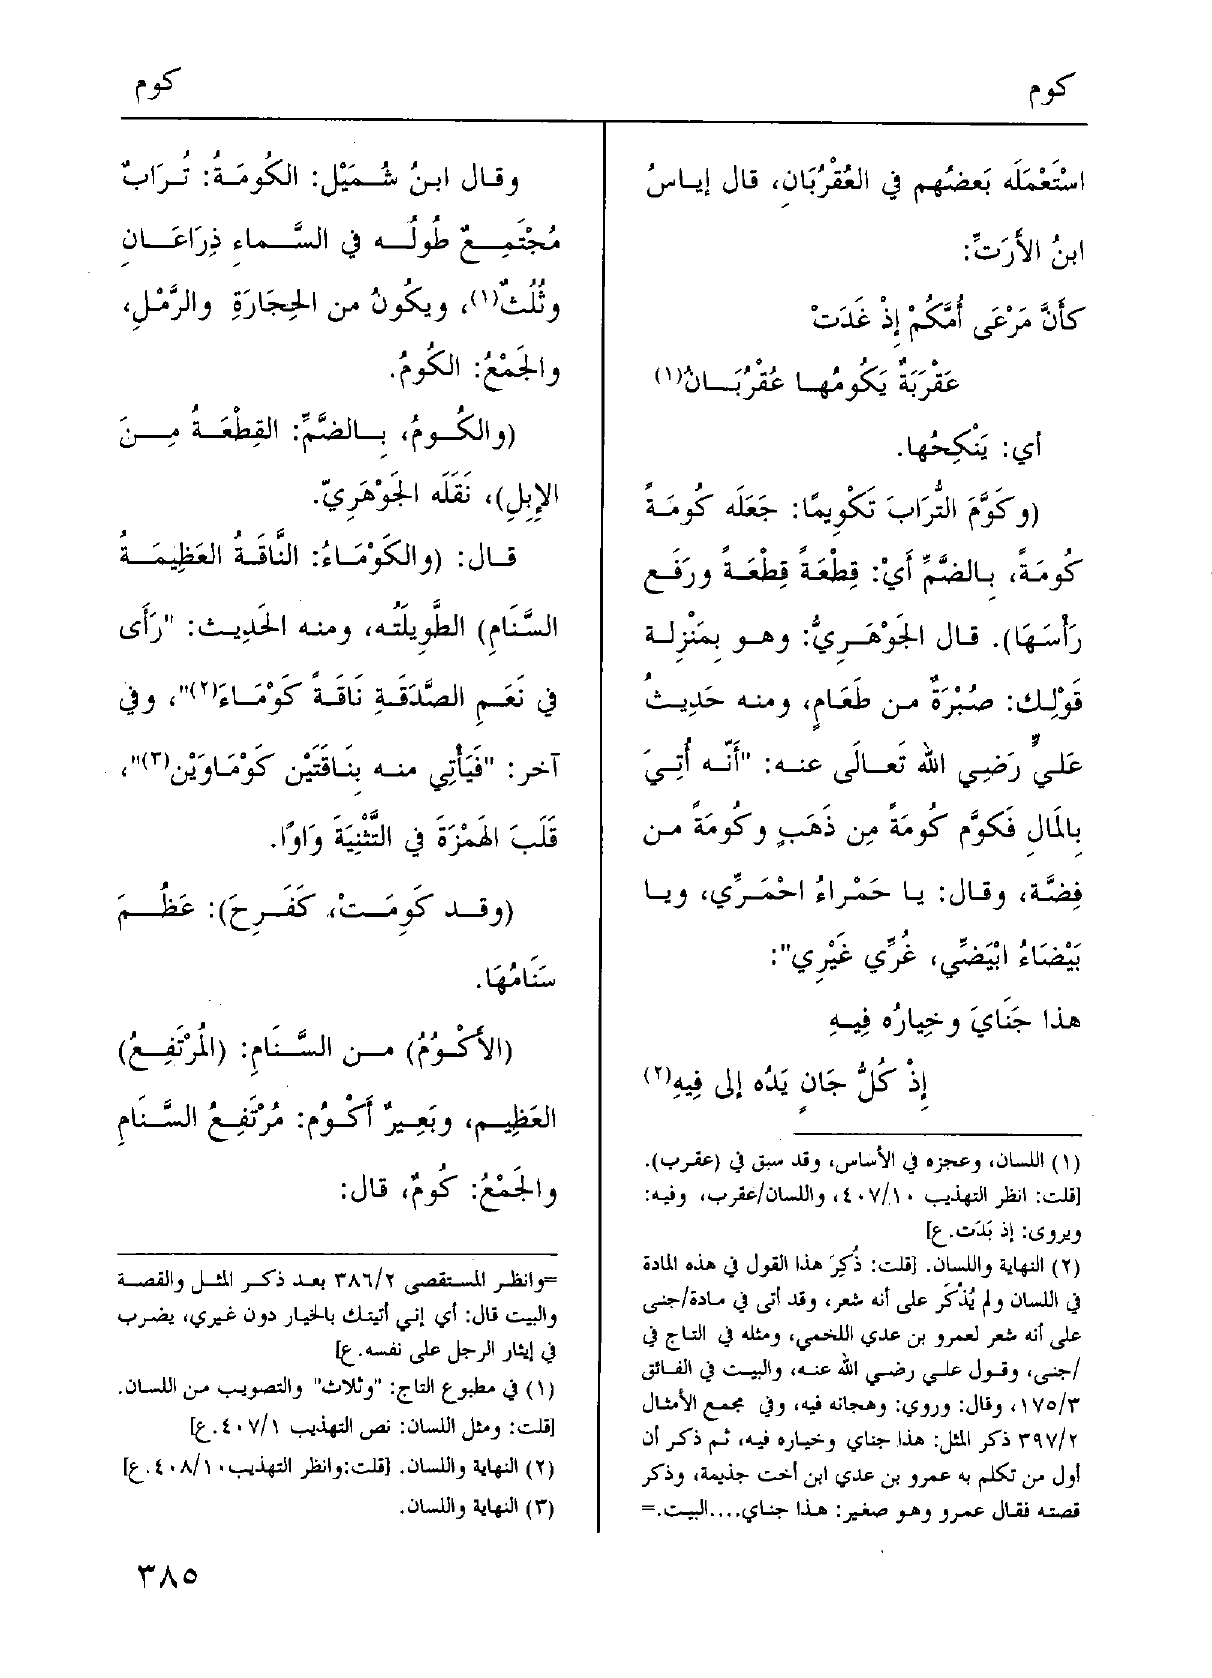 كوم
كوم
اسْتَعْمَلَه بَعضُهم في العُقْرُبَانِ، قال إياسُ
ابنُ الأَرَتِّ:
كأَنَّ مَرْعَى أُمَّكُمْ إِذْ غَدَتْ
عَقْرَبَةٌ يَكُومُهـا عُقْرُبَـانُ(١)
أي: يَنْكِحُها.
(وكَوَّمَ التُّرَابَ تَكْوِيمًا: جَعَلَه كُومَةً
كُومَةً، بالضَّمِّ أَيْ: قِطْعَةً قِطْعَةً ورَفَع
رَأْسَهَا). قال الجَوْهَرِيُّ: وهو بِمَنْزِلة
قَوْلِكَ: صُبْرَةٌ من طَعَامٍ، ومنه حَدِيثُ
عَلِيٍّ رَضِي اللّه تَعالَى عنه: "أَنَّه أُتِيَ
بِالمَالِ فَكَوَّم كُومَةً مِن ذَهَبٍ وكُومَةً من
فِضَّة، وقال: يا حَمْراءُ احْمَرِّي، ويا
بَيْضَاءُ ابْيَضِّي، غُرِّي غَيْرِي":
هذا جَنَايَ وخِيارُه فِيهِ
إِذْ كُلُّ جَانٍ يَدُه إلى فِيهِ(٢)
(١) اللسان، وعجزه في الأساس، وقد سبق في (عقرب).
[قلت: انظر التهذيب ٤٠٧/١٠، واللسان/عقرب، وفيه:
ويروى: إذ بَدَت.ع]
(٢) النهاية واللسان. [قلت: ذُكِرَ هذا القول في هذه المادة
في اللسان ولم يُذْكَر على أنه شعر، وقد أتى في مادة/جنى
على أنه شعر لعمرو بن عدي اللخمي، ومثله في التاج في
/جني، وقول علي رضي اللّه عنه، والبيت في الفائق
١٧٥/٣، وقال: وروي: وهجانه فيه، وفي مجمع الأمثال
٣٩٧/٢ ذكر المثل: هذا جناي وخياره فيه، ثم ذكر أن
أول من تكلم به عمرو بن عدي ابن أخت جذيمة، وذكر
قصته فقال عمرو وهو صغير: هذا جناي....البيت.=
وقال ابنُ شُمَيْل: الكُومَةُ: تُرَابٌ
مُجْتَمِعٌ طُولُه في السَّماءِ ذِرَاعَانِ
وثُلُثٌ(١)، ويكُونُ من الحِجَارَةِ والرَّمْلِ،
والجَمْعُ: الكُومُ.
(والكُومُ، بالضَّمِّ: القِطْعَةُ مِنَ
الإِبِلِ)، نَقَلَه الجَوْهَرِيّ.
قال: (والكَوْمَاءُ: النَّاقَةُ العَظِيمَةُ
السَّنَامِ) الطَّوِيلَتُه، ومنه الحَدِيث: "رَأَى
في نَعَمِ الصَّدَقَةِ نَاقَةً كَوْمَاءَ(٢)"، وفي
آخر: "فَيَأْتِي منه بِنَاقَتَيْن كَوْمَاوَيْن(٣)"،
قَلَبَ الهَمْزَةَ في التَّثْنِيَةِ وَاوًا.
(وقد كَوِمَتْ، كَفَرِحَ): عَظُمَ
سَنَامُهَا.
(الأَكْوُمُ) من السَّنَامِ: (المُرْتَفِعُ)
العَظِيم، وبَعِيرٌ أَكْوُم: مُرْتَفِعُ السَّنَامِ
والجَمْعُ: كُومٌ، قال:
=وانظر المستقصى ٣٨٦/٢ بعد ذكر المثل والقصة
والبيت قال: أي إني أتيتك بالخيار دون غيري، يضرب
في إيثار الرجل على نفسه.ع]
(١) في مطبوع التاج: "وثلاث" والتصويب من اللسان.
[قلت: ومثل اللسان: نص التهذيب ٤٠٧/١.ع]
(٢) النهاية واللسان. [قلت:وانظر التهذيب٤٠٨/١٠.ع]
(٣) النهاية واللسان.
٣٨٥